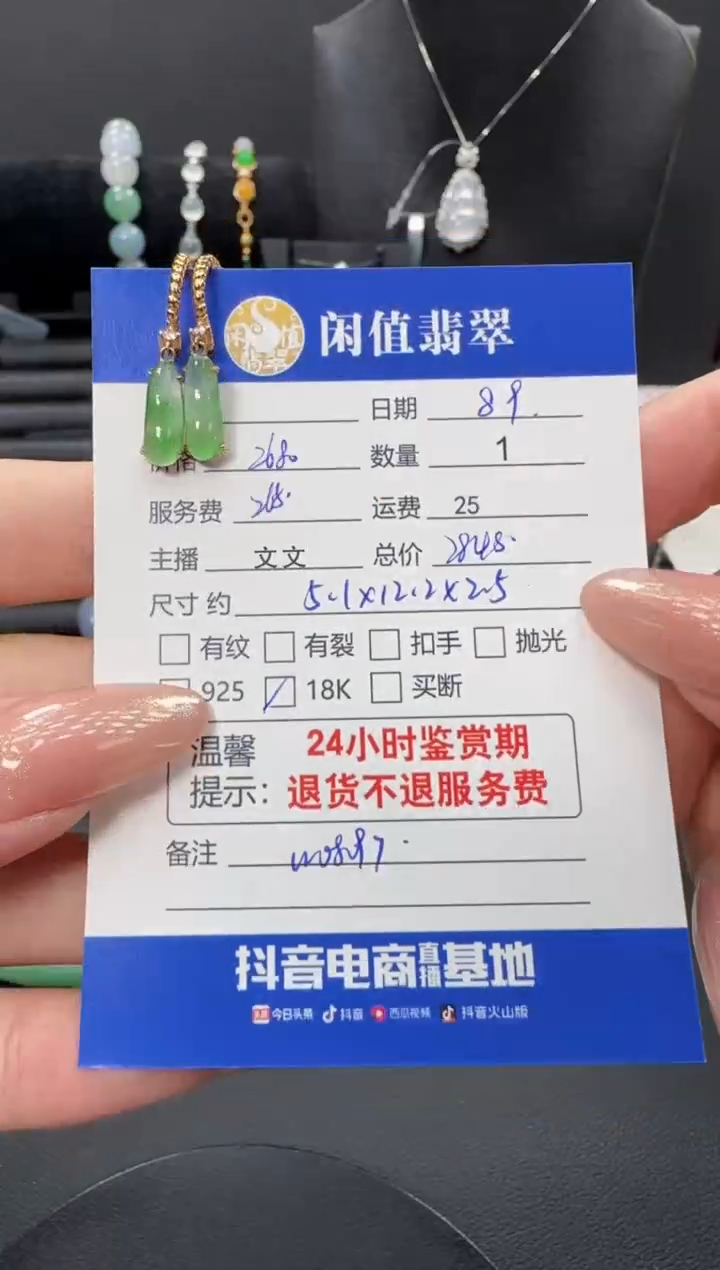 闲值翡翠
日期 89.
价格 2680 数量 1
服务费 运费 25
主播 文文 总价 2845.
尺寸 约 5.1x12.2x2.5
有纹 有裂 扣手 抛光
925 18K 买断
温馨 24小时鉴赏期
提示: 退货不退服务费
备注
抖音电商直播基地
今日头条 抖音 西瓜视频 抖音火山版